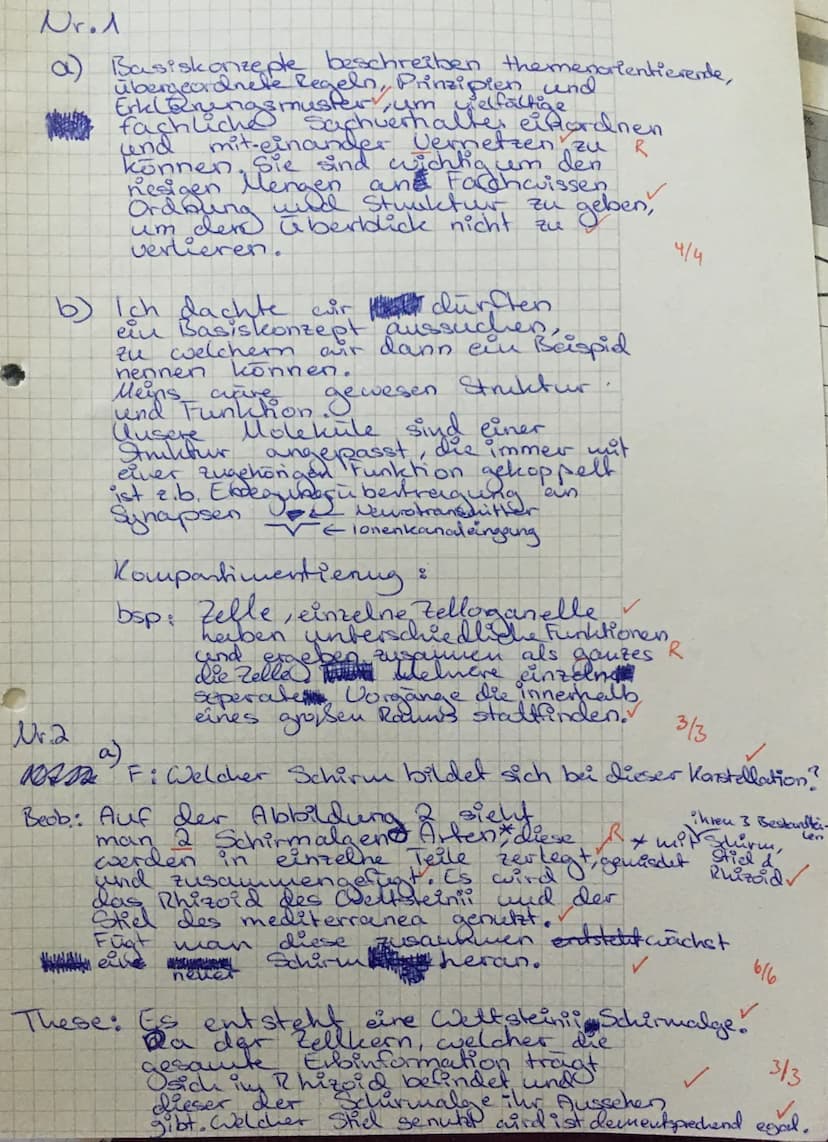 Nr. 1
a) Basiskonzepte beschreiben themenorientierende,
übergeordnete Regeln, Prinzipien und
Erklärungsmuster, um vielfältige
fachliche Sachverhalte einordnen
und mit-einander Vernetzen zu R
können. Sie sind wichtig um den
riesigen Mengen an Fachwissen
Ordnung und Struktur zu geben,
um den Überblick nicht zu
verlieren.
4/4
b) Ich dachte wir dürften
ein Basiskonzept aussuchen,
zu welchem wir dann ein Beispiel
nennen können.
Meins wäre gewesen Struktur
und Funktion.
Unsere Moleküle sind einer
Struktur angepasst, die immer mit
einer zugehörigen Funktion gekoppelt
ist z.b. übertragung an
Synapsen ← Neurotransmitter
← Ionenkanaleingang
Kompartimentierug:
bsp: Zelle, einzelne Zelloganelle
haben unterschiedliche Funktionen
und ergeben zusammen als ganzes R
die Zelle. Mehrere einzeln
seperate Vorgänge die innerhalb
eines großen Raums stattfinden.
3/3
Nr. 2
a) F: Welcher Schirm bildet sich bei dieser Konstellation?
Beob.: Auf der Abbildung 2 sieht
man 2 Schirmalgen Arten*, diese R * mit ihren 3 Bestandtei-
len Schirm,
werden in einzelne Teile zerlegt, gemischt Stiel &
und zusammengefügt. Es wird Rhizoid
das Rhizoid des Wettsteinii und der
Stiel des mediterranea genutzt.
Fügt man diese zusammen entsteht wächst
ein neuer Schirm heran.
6/6
These: Es entsteht eine Wettsteinii Schirmalge.
Da der Zellkern, welcher die
gesamte Erbinformation trägt
sich im Rhizoid befindet und 3/3
dieser der Schirmalge ihr Aussehen
gibt. Welcher Stiel genutzt wird ist dementsprechend egal.